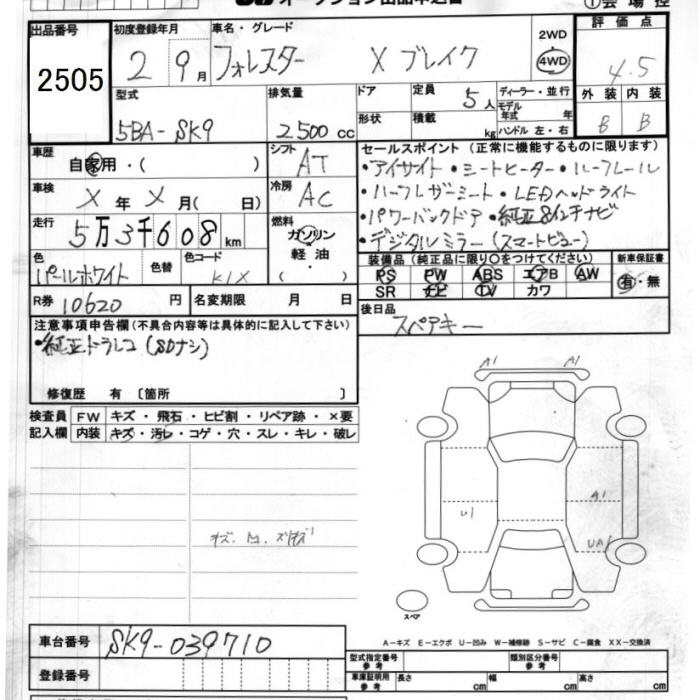 オークション出品申込書
①会場控
出品番号
2505
初度登録年月
2 9月
車名・グレード
フォレスター X ブレイク
2WD
4WD
評価点
4.5
外装 内装
B B
型式
5BA-SK9
排気量
2500cc
ドア
形状
定員
5人
積載
kg
ディーラー・並行
モデル年式 年
ハンドル 左・右
車歴
自家用・( )
シフト
AT
車検
X年X月( 日)
冷房
AC
走行
5万3千608km
燃料
ガソリン
軽油・
( )
色
パールホワイト
色替
色コード
K1X
R券
10620円
名変期限 月 日
セールスポイント(正常に機能するものに限ります)
・アイサイト・シートヒーター・ルーフレール
・ハーフレザーシート・LEDヘッドライト
・パワーバックドア・純正8インチナビ
・デジタルミラー(スマートビュー)
装備品(純正品に限り○をつけてください)
PS PW ABS エアB AW
SR ナビ TV カワ
新車保証書
有・無
後日品
スペアキー
注意事項申告欄(不具合内容等は具体的に記入して下さい)
・純正ドラレコ(SDナシ)
修復歴 有〔箇所 〕
検査員記入欄
FW キズ・飛石・ヒビ割・リペア跡・×要
内装 キズ・汚レ・コゲ・穴・スレ・キレ・破レ
A1 A1
A1
U1
UA1
スペア
A-キズ E-エクボ U-凹み W-補修跡 S-サビ C-腐食 XX-交換済
車台番号
SK9-039710
登録番号
型式指定番号参考
類別区分番号参考
車庫証明用参考
長さ cm 幅 cm 高さ cm